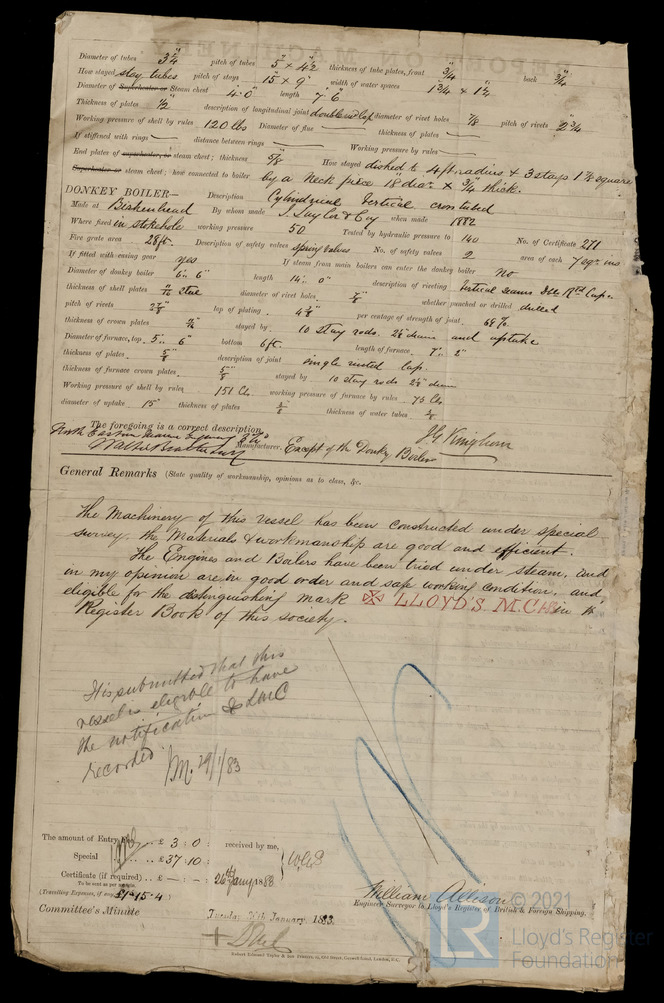 Diameter of tubes 3¼" pitch of tubes 5" × 4½" thickness of tube plates, front ¾" back ¾"
How stayed stay tubes pitch of stays 15" × 9" width of water spaces 1¾ & 1¼
Diameter of Superheater or Steam chest 4'.0" length 7'.6"
Thickness of plates ½" description of longitudinal joint double riv lap diameter of rivet holes 7/8 pitch of rivets 2¾"
Working pressure of shell by rules 120 lbs Diameter of flue thickness of plates
If stiffened with rings distance between rings Working pressure by rules
End plates of superheater, or steam chest; thickness 5/8" How stayed dished to 4ft radius & 3 stays 1¾ square
Superheater or steam chest; how connected to boiler by a neck piece 18" dia. × ¾ thick.
DONKEY BOILER— Description Cylindrical Vertical cross tubed
Made at Birkenhead By whom made J. Taylor & Coy when made 1882
Where fixed in stokehole working pressure 50 Tested by hydraulic pressure to 140 No. of Certificate 271
Fire grate area 28ft. Description of safety valves spring valves No. of safety valves 2 area of each 7 sqr. ins
If fitted with easing gear yes If steam from main boilers can enter the donkey boiler no
Diameter of donkey boiler 6'. 6" length 14'. 0" description of riveting Vertical seams Dble Rtd Lap.
thickness of shell plates steel diameter of rivet holes 7/8" whether punched or drilled drilled
pitch of rivets lap of plating per centage of strength of joint 68 %
thickness of crown plates stayed by 10 stay rods. diam and uptake
Diameter of furnace, top 5'. 6" bottom 6ft. length of furnace
thickness of plates description of joint single riveted lap.
thickness of furnace crown plates 5/8" stayed by 10 stay rods diam
Working pressure of shell by rules 151 lbs working pressure of furnace by rules 73 lbs
diameter of uptake 15" thickness of plates thickness of water tubes
The foregoing is a correct description,
North Eastern Marine Engineering Co Ld Manufacturer. Except of the Donkey Boilers J G Kinghorn
General Remarks (State quality of workmanship, opinions as to class, &c.
The Machinery of this vessel has been constructed under special
survey, the Materials & workmanship are good and efficient.
The Engines and Boilers have been tried under steam, and
in my opinion are in good order and safe working condition, and
eligible for the distinguishing mark LLOYD'S M.C. in the
Register Book of this society.
It is submitted that this
vessel is eligible to have
the notification LMC
recorded.
29/1/83
The amount of Entry Fee .. £ 3 : 0 : received by me,
Special .. £37 : 10 :
Certificate (if required) .. £ — : — : 26th Jany 1883
To be sent as per margin.
(Travelling Expenses, if any, £1 . 15 . 4)
William Allison
Engineer Surveyor to Lloyd's Register of British & Foreign Shipping.
Committee's Minute Tuesday 30th January 1883.
© 2021
LR
Lloyd's Register
Foundation